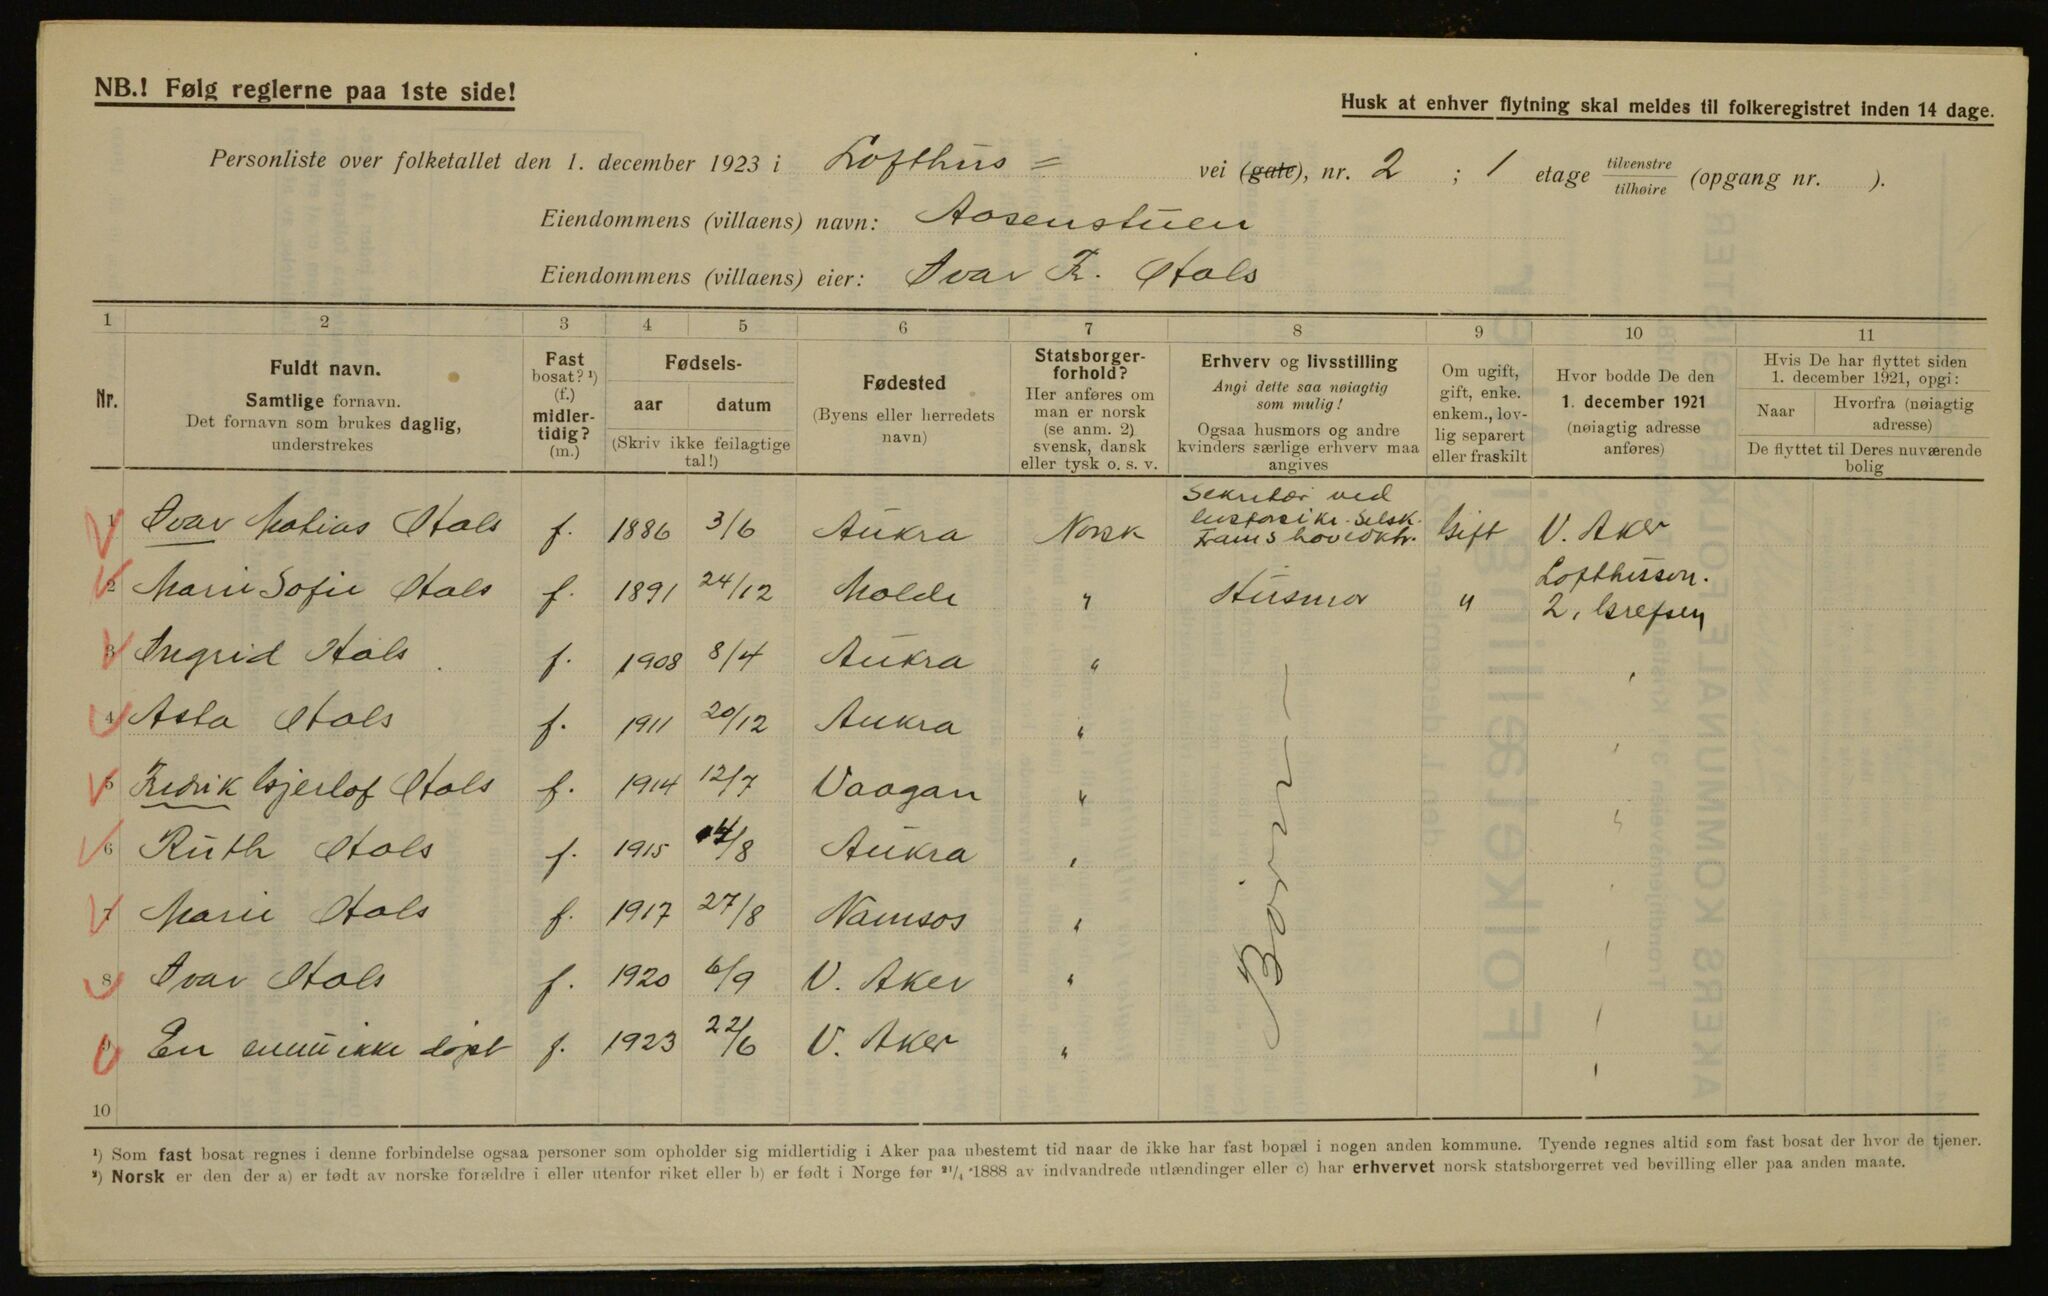 NB.! Følg reglerne paa 1ste side!
Husk at enhver flytning skal meldes til folkeregistret inden 14 dage.
Personliste over folketallet den 1. december 1923 i Lofthus = vei (gate), nr. 2 ; 1 etage tilvenstre tilhøire (opgang nr. ).
Eiendommens (villaens) navn: Aasenstuen
Eiendommens (villaens) eier: Ivar Fr. Hals
1 2 3 4 5 6 7 8 9 10 11
Nr.
Fuldt navn.
Samtlige fornavn.
Det fornavn som brukes daglig,
understrekes
Fast
bosat? ¹)
(f.)
midler-
tidig?
(m.)
Fødsels-
aar datum
(Skriv ikke feilagtige
tal!)
Fødested
(Byens eller herredets
navn)
Statsborger-
forhold?
Her anføres om
man er norsk
(se anm. 2)
svensk, dansk
eller tysk o. s. v.
Erhverv og livsstilling
Angi dette saa nøiagtig
som mulig!
Ogsaa husmors og andre
kvinders særlige erhverv maa
angives
Om ugift,
gift, enke.
enkem., lov-
lig separert
eller fraskilt
Hvor bodde De den
1. december 1921
(nøiagtig adresse
anføres)
Hvis De har flyttet siden
1. december 1921, opgi:
Naar
Hvorfra (nøiagtig
adresse)
De flyttet til Deres nuværende
bolig
Sekretær ved
Livsforsikr. Selsk.
1 Ivar Matias Hals f. 1886 3/6 Aukra Norsk Frams hovedktr. Gift V. Aker
2 Marie Sofie Hals f. 1891 24/12 Molde " Husmor " Lofthusvn.
2, Grefsen
3 Ingrid Hals f. 1908 8/4 Aukra " "
4 Asta Hals f. 1911 20/12 Aukra " "
5 Fredrik Gjerlof Hals f. 1914 12/7 Vaagan " "
6 Ruth Hals f. 1915 14/8 Aukra " "
7 Marie Hals f. 1917 27/8 Namsos " "
8 Ivar Hals f. 1920 6/9 V. Aker " "
9 En ennu ikke døpt f. 1923 22/6 V. Aker " "
Børn
10
¹) Som fast bosat regnes i denne forbindelse ogsaa personer som opholder sig midlertidig i Aker paa ubestemt tid naar de ikke har fast bopæl i nogen anden kommune. Tyende regnes altid som fast bosat der hvor de tjener.
²) Norsk er den der a) er født av norske forældre i eller utenfor riket eller b) er født i Norge før 21/4 1888 av indvandrede utlændinger eller c) har erhvervet norsk statsborgerret ved bevilling eller paa anden maate.